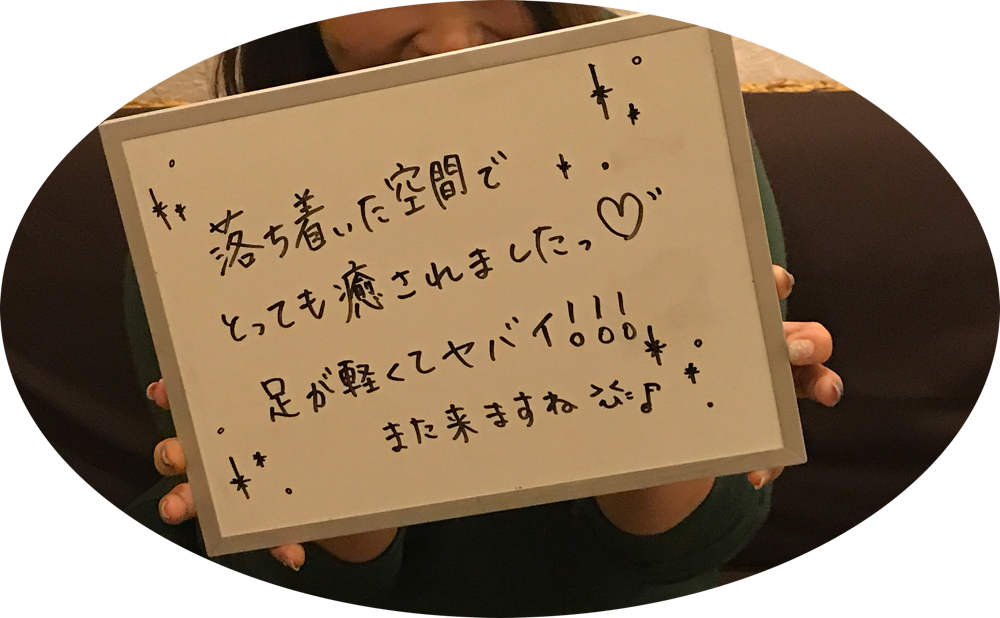 落ち着いた空間で
とっても癒されましたっ♡
足が軽くてヤバイ!!!
また来ますね♪